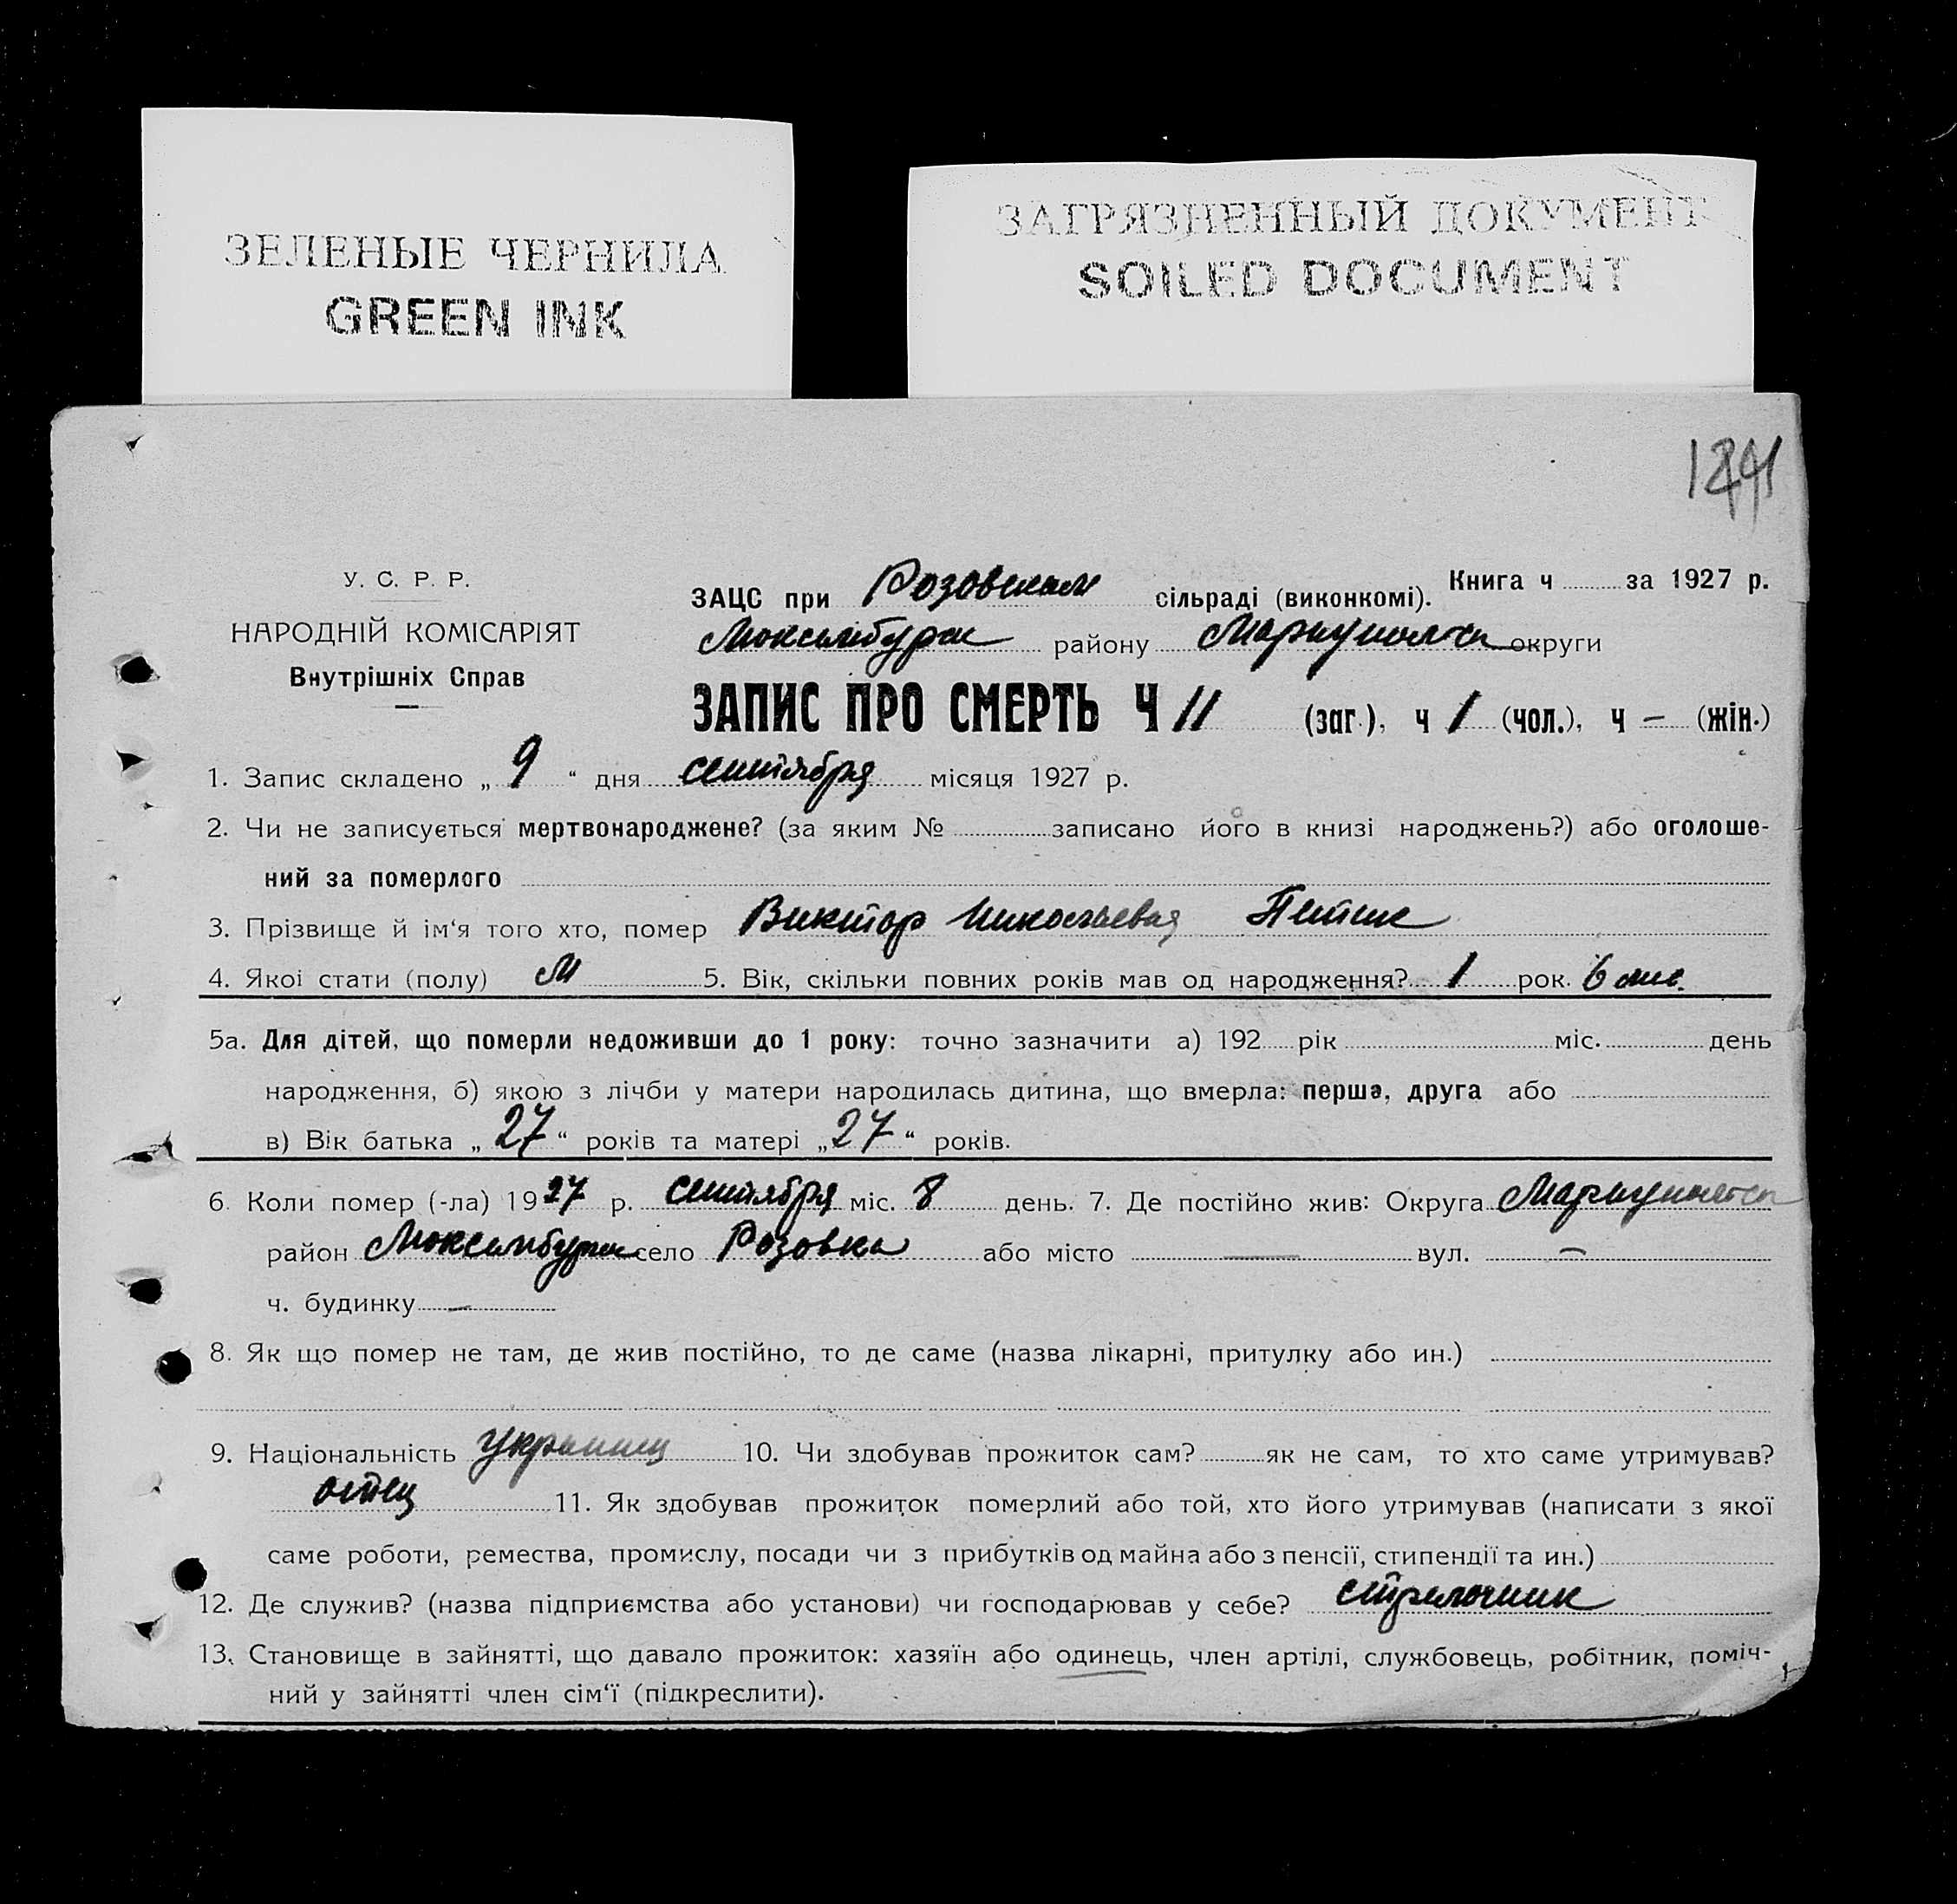 ЗЕЛЕНЫЕ ЧЕРНИЛА
GREEN INK
ЗАГРЯЗНЕННЫЙ ДОКУМЕНТ
SOILED DOCUMENT
У. С. Р. Р.
НАРОДНІЙ КОМІСАРІЯТ
Внутрішніх Справ
Книга ч за 1927 р.
ЗАЦС при Розовском сільраді (виконкомі).
Люксембург району Мариупольск округи
ЗАПИС ПРО СМЕРТЬ Ч 11 (заг.), ч 1 (чол.), ч — (жін.)
1. Запис складено „ 9 “ дня сентября місяця 1927 р.
2. Чи не записується мертвонароджене? (за яким № записано його в книзі народжень?) або оголоше-
ний за померлого
3. Прізвище й ім‘я того хто, помер Виктор Николаевич
4. Якоі стати (полу) М 5. Вік, скільки повних років мав од народження? 1 рок. 6 мес.
5а. Для дітей, що померли недоживши до 1 року: точно зазначити а) 192 рік міс. день
народження, б) якою з лічби у матери народилась дитина, що вмерла: перша, друга або
в) Вік батька „ 27 “ років та матері „ 27 “ років.
6. Коли помер (-ла) 1927 р. сентября міс. 8 день. 7. Де постійно жив: Округа Мариупольск
район Люксембург село Розовка або місто — вул. —
ч. будинку —
8. Як що помер не там, де жив постійно, то де саме (назва лікарні, притулку або ин.)
9. Національність украинец 10. Чи здобував прожиток сам? як не сам, то хто саме утримував?
отец 11. Як здобував прожиток померлий або той, хто його утримував (написати з якої
саме роботи, ремества, промислу, посади чи з прибутків од майна або з пенсії, стипендії та ин.)
12. Де служив? (назва підприємства або установи) чи господарював у себе? стрелочник
13. Становище в зайнятті, що давало прожиток: хазяїн або одинець, член артілі, службовець, робітник, поміч-
ний у зайнятті член сім‘ї (підкреслити).